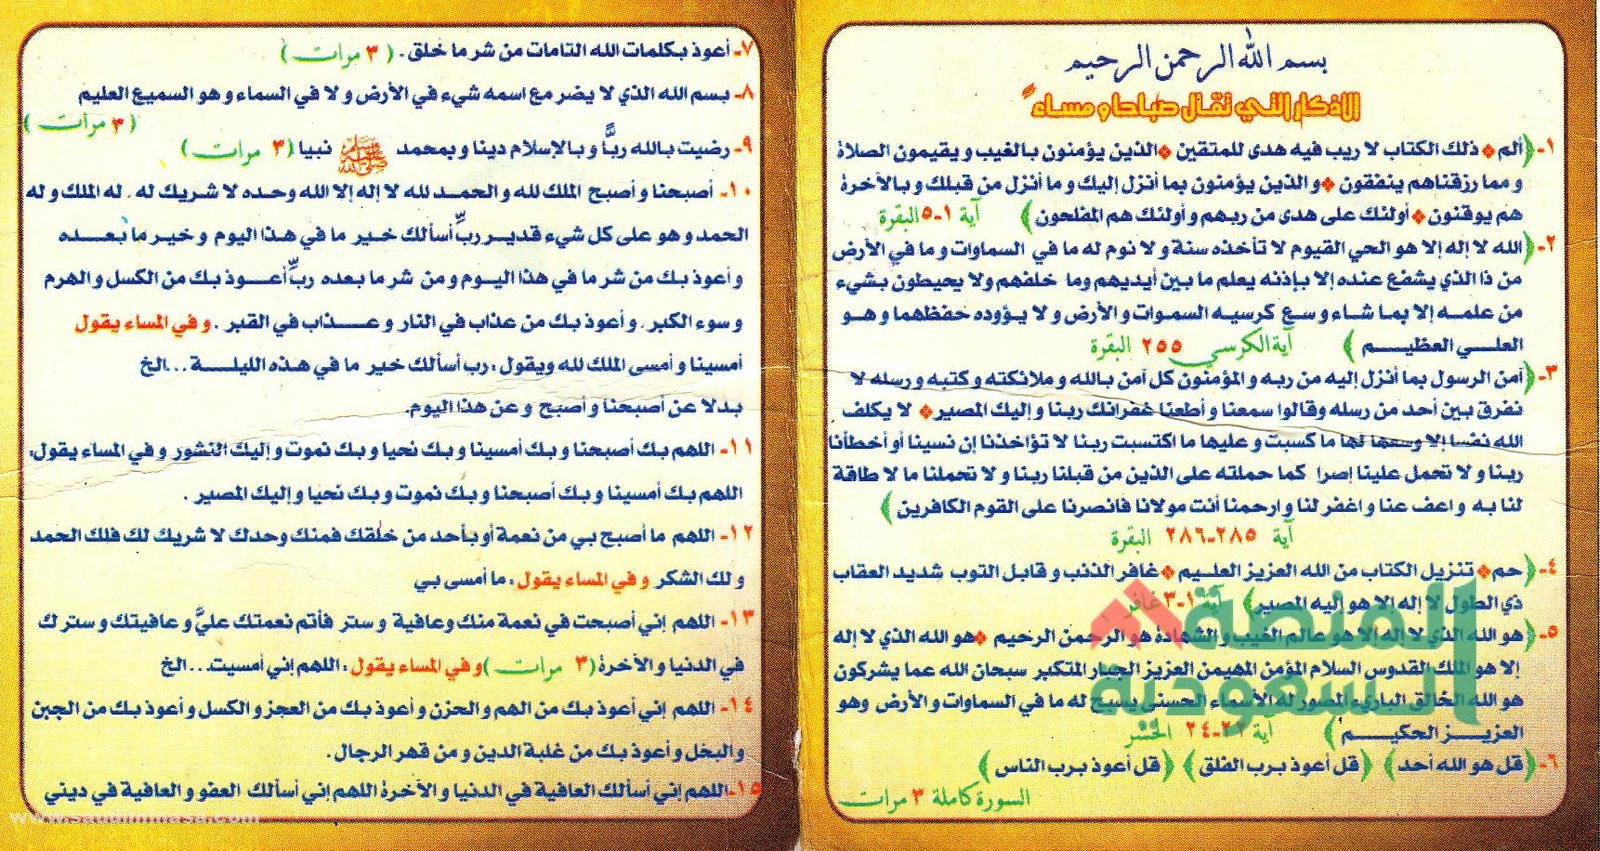 بسم الله الرحمن الرحيم
الاذكار التي تقال صباحا ومساءً
١- ﴿ ألم * ذلك الكتاب لا ريب فيه هدى للمتقين * الذين يؤمنون بالغيب ويقيمون الصلاة
ومما رزقناهم ينفقون * والذين يؤمنون بما أنزل إليك وما أنزل من قبلك وبالآخرة
هم يوقنون * أولئك على هدى من ربهم وأولئك هم المفلحون ﴾ آية ١-٥ البقرة
٢- ﴿ الله لا إله إلا هو الحي القيوم لا تأخذه سنة ولا نوم له ما في السماوات وما في الأرض
من ذا الذي يشفع عنده إلا بإذنه يعلم ما بين أيديهم وما خلفهم ولا يحيطون بشيء
من علمه إلا بما شاء وسع كرسيه السموات والأرض ولا يؤوده حفظهما وهو
العلي العظيم ﴾ آية الكرسي ٢٥٥ البقرة
٣- ﴿ آمن الرسول بما أنزل إليه من ربه والمؤمنون كل آمن بالله وملائكته وكتبه ورسله لا
نفرق بين أحد من رسله وقالوا سمعنا وأطعنا غفرانك ربنا وإليك المصير * لا يكلف
الله نفسا إلا وسعها لها ما كسبت وعليها ما اكتسبت ربنا لا تؤاخذنا إن نسينا أو أخطأنا
ربنا ولا تحمل علينا إصرا كما حملته على الذين من قبلنا ربنا ولا تحملنا ما لا طاقة
لنا به واعف عنا واغفر لنا وارحمنا أنت مولانا فانصرنا على القوم الكافرين ﴾
آية ٢٨٥-٢٨٦ البقرة
٤- ﴿ حم * تنزيل الكتاب من الله العزيز العليم * غافر الذنب وقابل التوب شديد العقاب
ذي الطول لا إله إلا هو إليه المصير ﴾ آية ١-٣ غافر
٥- ﴿ هو الله الذي لا إله إلا هو عالم الغيب والشهادة هو الرحمن الرحيم * هو الله الذي لا إله
إلا هو الملك القدوس السلام المؤمن المهيمن العزيز الجبار المتكبر سبحان الله عما يشركون
هو الله الخالق الباريء المصور له الأسماء الحسنى يسبح له ما في السماوات والأرض وهو
العزيز الحكيم ﴾ آية ٢٢-٢٤ الحشر
٦- ﴿ قل هو الله أحد ﴾ ﴿ قل أعوذ برب الفلق ﴾ ﴿ قل أعوذ برب الناس ﴾
السورة كاملة ٣ مرات
المنصة
السعودية
٧- أعوذ بكلمات الله التامات من شر ما خلق . ( ٣ مرات )
٨- بسم الله الذي لا يضر مع اسمه شيء في الأرض ولا في السماء وهو السميع العليم
( ٣ مرات )
٩- رضيت بالله ربًّا وبالإسلام دينا وبمحمد ﷺ نبيا ( ٣ مرات )
١٠- أصبحنا وأصبح الملك لله والحمد لله لا إله إلا الله وحده لا شريك له . له الملك وله
الحمد وهو على كل شيء قدير ربِّ أسألك خير ما في هذا اليوم وخير ما بعده
وأعوذ بك من شر ما في هذا اليوم ومن شر ما بعده ربِّ أعوذ بك من الكسل والهرم
وسوء الكبر . وأعوذ بك من عذاب في النار وعذاب في القبر . وفي المساء يقول
أمسينا وأمسى الملك لله ويقول : رب أسألك خير ما في هذه الليلة ... الخ
بدلا عن أصبحنا وأصبح وعن هذا اليوم.
١١- اللهم بك أصبحنا وبك أمسينا وبك نحيا وبك نموت وإليك النشور وفي المساء يقول:
اللهم بك أمسينا وبك أصبحنا وبك نموت وبك نحيا وإليك المصير .
١٢- اللهم ما أصبح بي من نعمة أو بأحد من خلقك فمنك وحدك لا شريك لك فلك الحمد
ولك الشكر وفي المساء يقول : ما أمسى بي
١٣- اللهم إني أصبحت في نعمة منك وعافية وستر فأتم نعمتك عليَّ وعافيتك وسترك
في الدنيا والآخرة ( ٣ مرات ) وفي المساء يقول : اللهم إني أمسيت ... الخ
١٤- اللهم إني أعوذ بك من الهم والحزن وأعوذ بك من العجز والكسل وأعوذ بك من الجبن
والبخل وأعوذ بك من غلبة الدين ومن قهر الرجال.
١٥- اللهم إني أسألك العافية في الدنيا والآخرة اللهم إني أسألك العفو والعافية في ديني